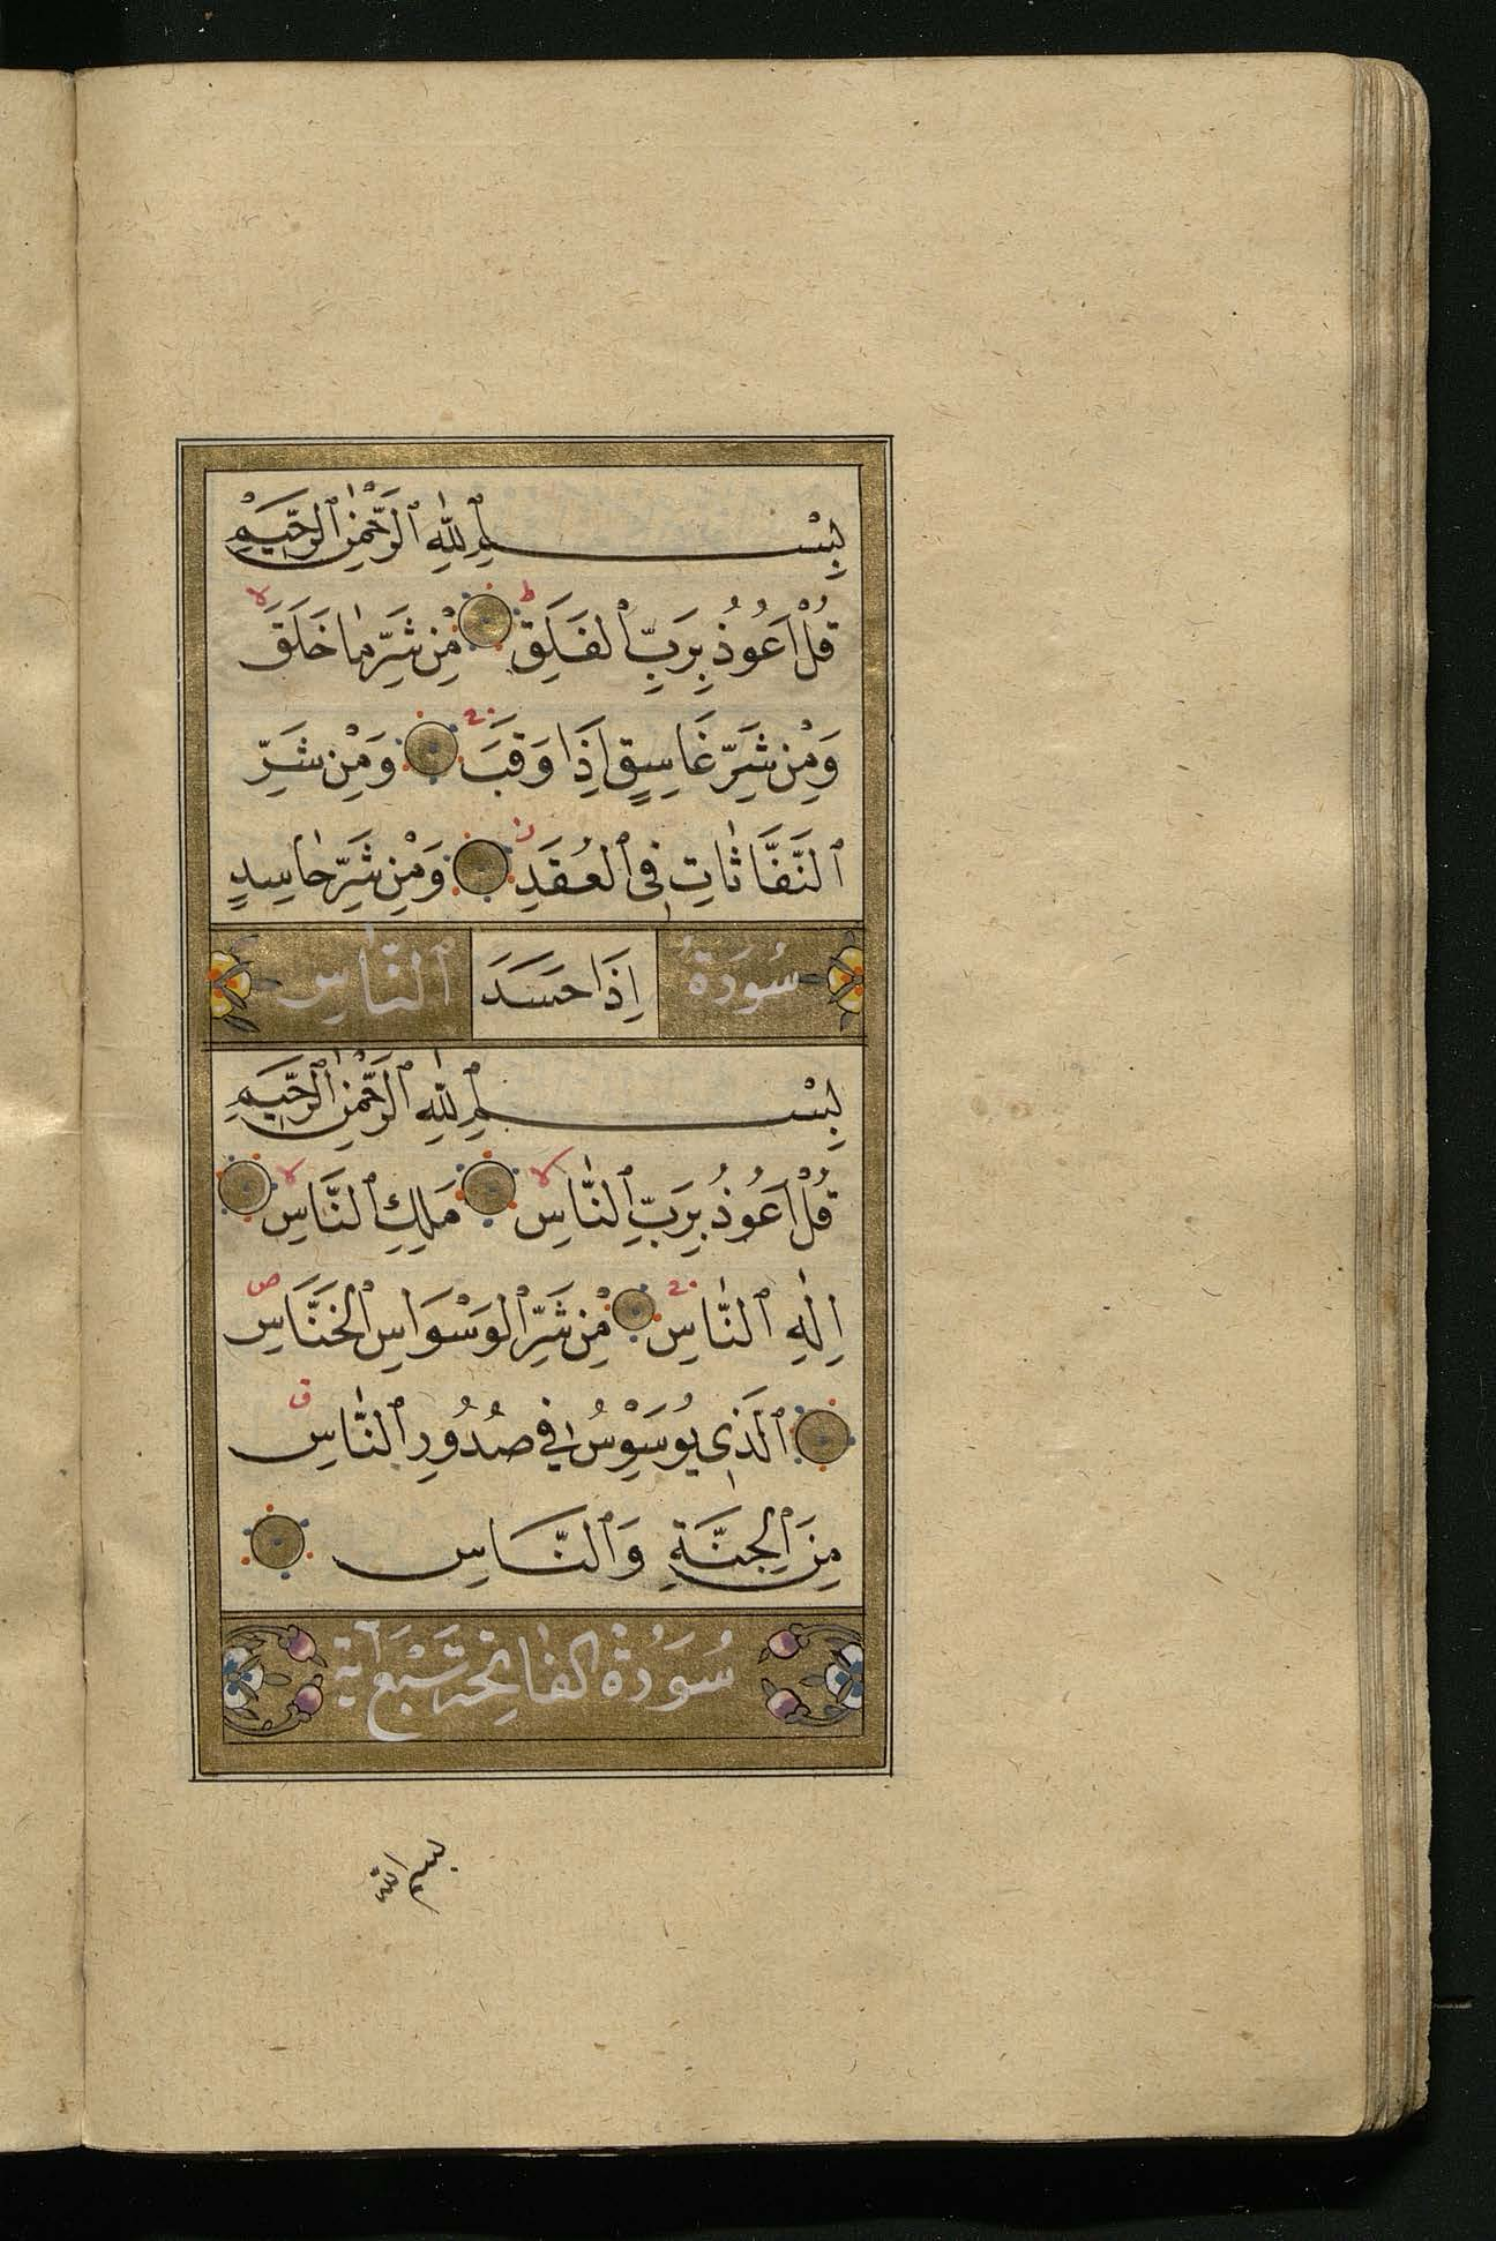 بِسْمِ ٱللّٰهِ ٱلرَّحْمٰنِ ٱلرَّحِيمِ
قُلْ اَعُوذُ بِرَبِّ ٱلْفَلَقِ ط مِنْ شَرِّ مٰا خَلَقَ لا
وَمِنْ شَرِّ غَاسِقٍ اِذَا وَقَبَ وَمِنْ شَرِّ
ٱلنَّفَّاثٰاتِ فِى ٱلْعُقَدِ وَمِنْ شَرِّ حٰاسِدٍ
سُورَةُ اِذَا حَسَدَ ٱلنّٰاسِ
بِسْمِ ٱللّٰهِ ٱلرَّحْمٰنِ ٱلرَّحِيمِ
قُلْ اَعُوذُ بِرَبِّ ٱلنّٰاسِ لا مَلِكِ ٱلنَّاسِ لا
اِلٰهِ ٱلنّٰاسِ مِنْ شَرِّ ٱلْوَسْوَاسِ ٱلْخَنَّاسِ ص
ٱلَّذِى يُوَسْوِسُ فِى صُدُورِ ٱلنّٰاسِ ق
مِنَ ٱلْجِنَّةِ وَٱلنَّاسِ
سُورَةُ الفٰاتِحَة سَبْعَ آية
بسم الله